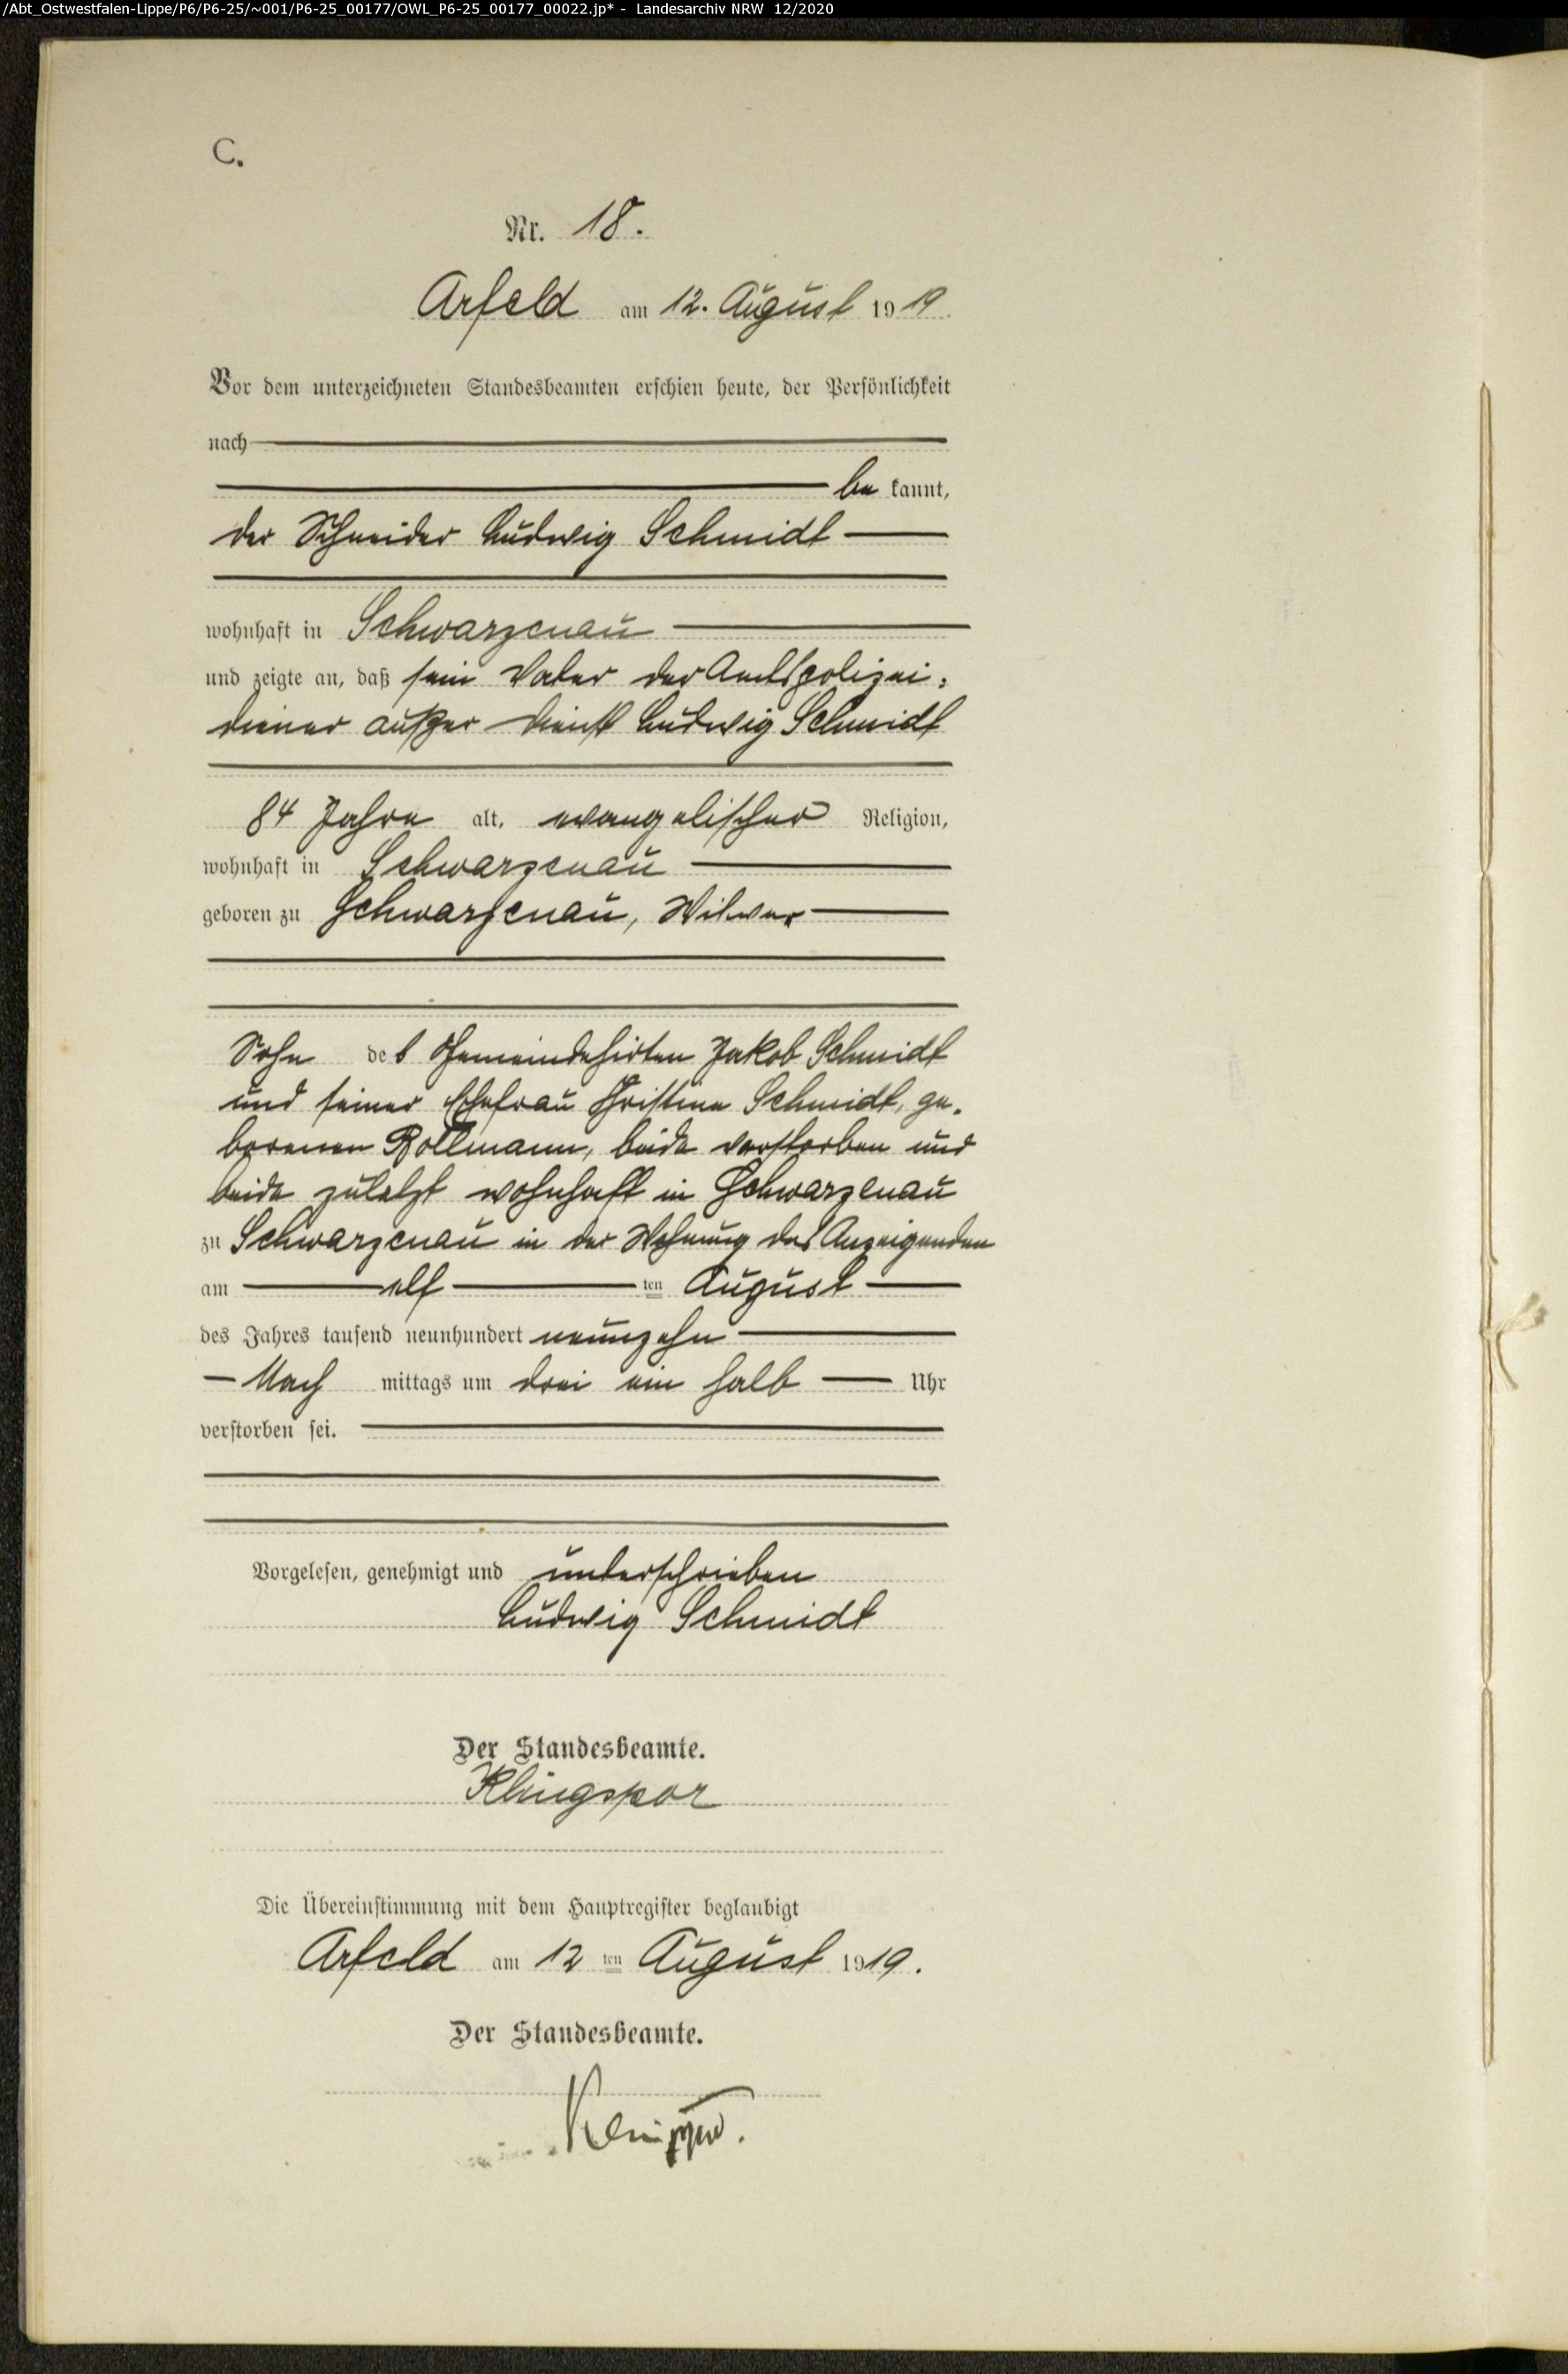 /Abt_Ostwestfalen-Lippe/P6/P6-25/~001/P6-25_00177/OWL_P6-25_00177_00022.jp* - Landesarchiv NRW 12/2020
C.
Nr. 18.
Arfeld am 12. August 1919.
Vor dem unterzeichneten Standesbeamten erschien heute, der Persönlichkeit
nach
be kannt,
der Schneider Ludwig Schmidt
wohnhaft in Schwarzenau
und zeigte an, daß sein Vater der Amtspolizei-
diener außer Dienst Ludwig Schmidt
84 Jahre alt, evangelischer Religion,
wohnhaft in Schwarzenau
geboren zu Schwarzenau, Witwer
Sohn des Gemeindehirten Jakob Schmidt
und seiner Ehefrau Christine Schmidt, ge-
borenen Bollmann, beide verstorben und
beide zuletzt wohnhaft in Schwarzenau
zu Schwarzenau in der Wohnung des Anzeigenden
am elf ten August
des Jahres tausend neunhundert neunzehn
Nach mittags um drei ein halb Uhr
verstorben sei.
Vorgelesen, genehmigt und unterschrieben
Ludwig Schmidt
Der Standesbeamte.
Klingspor
Die Übereinstimmung mit dem Hauptregister beglaubigt
Arfeld am 12 ten August 1919.
Der Standesbeamte.